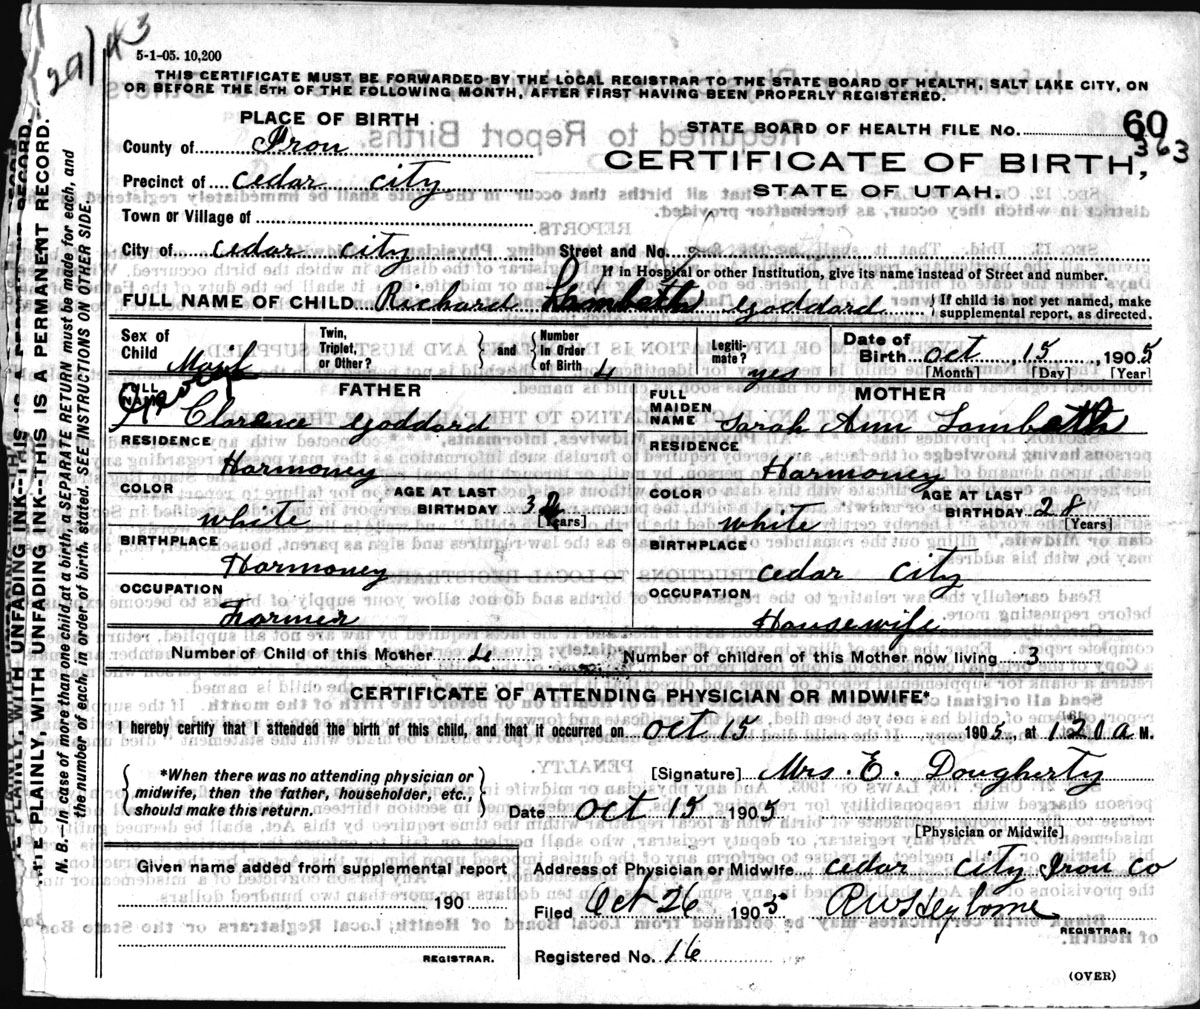 29/43
5-1-05. 10,200
THIS CERTIFICATE MUST BE FORWARDED BY THE LOCAL REGISTRAR TO THE STATE BOARD OF HEALTH, SALT LAKE CITY, ON
OR BEFORE THE 5TH OF THE FOLLOWING MONTH, AFTER FIRST HAVING BEEN PROPERLY REGISTERED.
PLACE OF BIRTH
STATE BOARD OF HEALTH FILE No. 60
363
County of Iron
CERTIFICATE OF BIRTH,
Precinct of Cedar City
STATE OF UTAH.
Town or Village of
City of Cedar City Street and No.
If in Hospital or other Institution, give its name instead of Street and number.
FULL NAME OF CHILD Richard Lambeth Goddard { If child is not yet named, make supplemental report, as directed.
Sex of Child Mail
Twin, Triplet, or Other? } and { Number in Order of Birth 4
Legiti-mate? yes
Date of Birth Oct 15, 1905
[Month] [Day] [Year]
FATHER
FULL NAME Clarence Goddard
RESIDENCE
Harmoney
COLOR white AGE AT LAST BIRTHDAY 32 [Years]
BIRTHPLACE
Harmoney
OCCUPATION
Farmer
MOTHER
FULL MAIDEN NAME Sarah Ann Lambeth
RESIDENCE
Harmoney
COLOR white AGE AT LAST BIRTHDAY 28 [Years]
BIRTHPLACE
Cedar City
OCCUPATION
Housewife
Number of Child of this Mother 4 Number of children of this Mother now living 3
CERTIFICATE OF ATTENDING PHYSICIAN OR MIDWIFE*
I hereby certify that I attended the birth of this child, and that it occurred on Oct 15 1905, at 1 20 a M.
{ *When there was no attending physician or midwife, then the father, householder, etc., should make this return. }
[Signature] Mrs. E. Dougherty
Date Oct 15 1905
[Physician or Midwife]
Given name added from supplemental report
190
REGISTRAR.
Address of Physician or Midwife Cedar City Iron Co
Filed Oct 26 1905 R W Heyborne
REGISTRAR.
Registered No. 16
(OVER)
WRITE PLAINLY, WITH UNFADING INK--THIS IS A PERMANENT RECORD.
N. B.--In case of more than one child at a birth, a SEPARATE RETURN must be made for each, and
the number of each, in order of birth, stated. SEE INSTRUCTIONS ON OTHER SIDE.